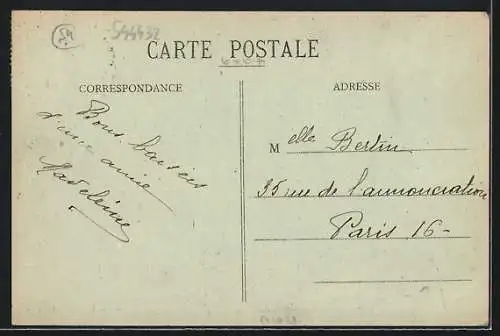 54
544432
CARTE POSTALE
CORRESPONDANCE
Bons baisers
d'une amie
Madeleine
ADRESSE
Melle Bertin
35 rue de l'annonciation
Paris 16-